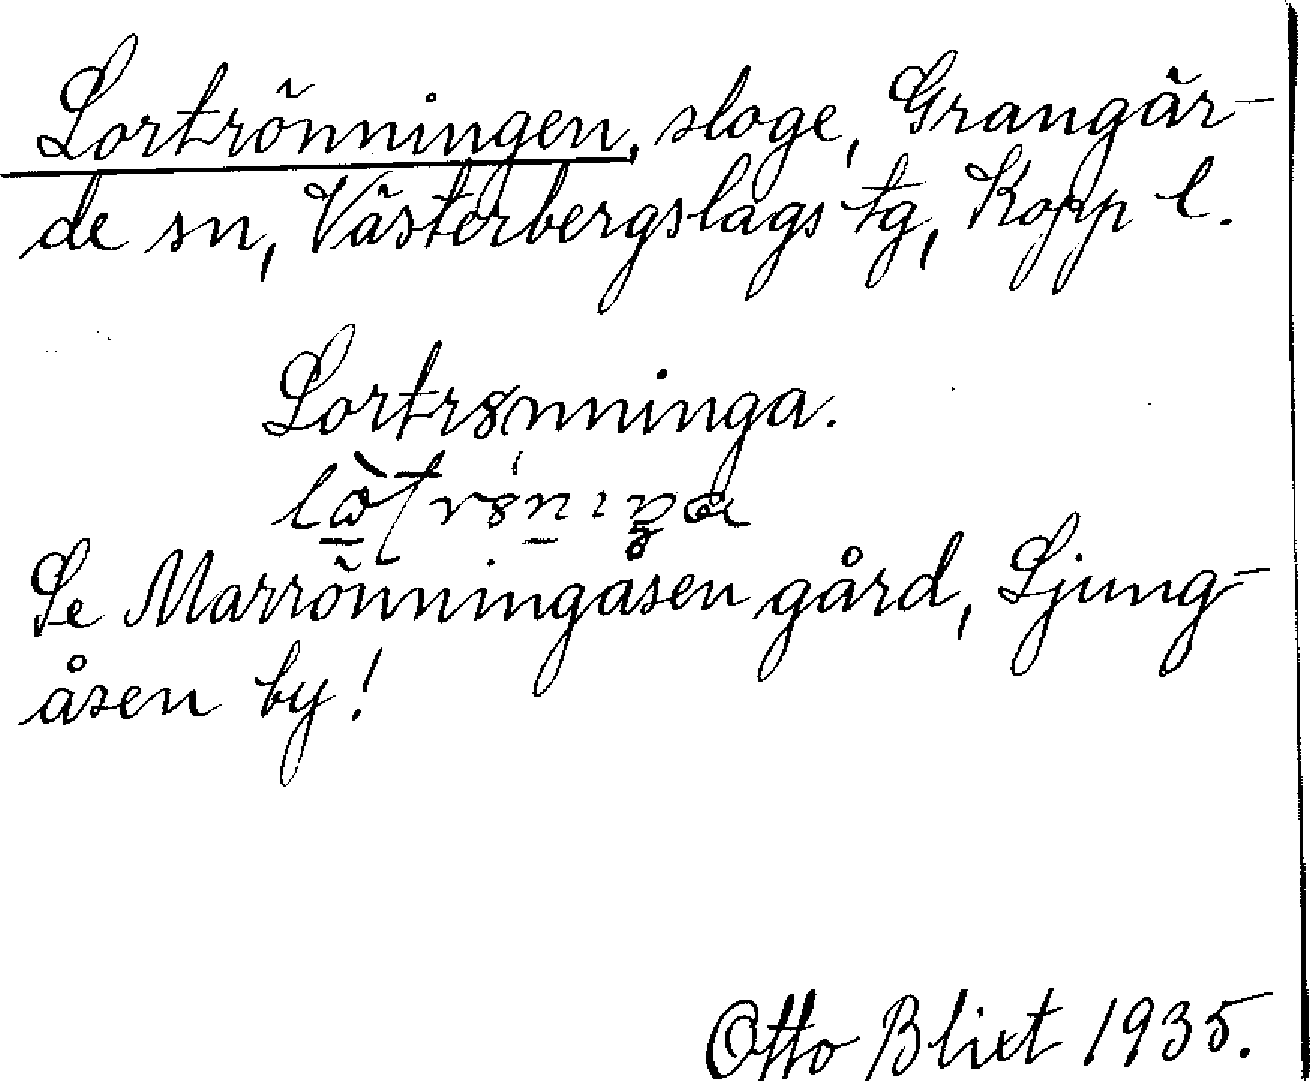 Lortrönningen, sloge, Grangär-
de sn, Västerbergslags tg, Kopp l.
Lortrönninga.
Se Marrönningåsen gård, Ljung-
åsen by!
Otto Blixt 1935.